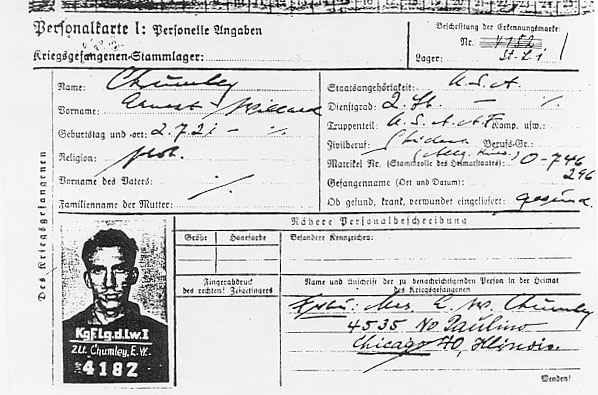 Personalkarte I: Personelle Angaben
Kriegsgefangenen-Stammlager:
Beschriftung der Erkennungsmarke
Nr. 4182
Lager: St. L. i
Des Kriegsgefangenen
Name: Chumley
Vorname: Ernest Willard
Geburtstag und -ort: 2.7.21 - %
Religion: prot.
Vorname des Vaters: %
Familienname der Mutter:
Staatsangehörigkeit: U.S.A.
Dienstgrad: 2. Lt. - %
Truppenteil: U.S.A.A.F. Komp. usw.:
Zivilberuf: Student Berufs-Gr.:
Matrikel Nr. (Stammrolle des Heimatstaates): O-746
296
Gefangennahme (Ort und Datum):
Ob gesund, krank, verwundet eingeliefert: gesund.
Nähere Personalbeschreibung
Größe
Haarfarbe
Besondere Kennzeichen:
Fingerabdruck
des rechten! Zeigefingers
Name und Anschrift der zu benachrichtigenden Person in der Heimat
des Kriegsgefangenen
Frau: Mrs. E. W. Chumley
4535 No. Paulina
Chicago 40, Illinois.
Wenden!
Kgf.Lg.d.Lw.I
2Lt. Chumley, E.W.
4182